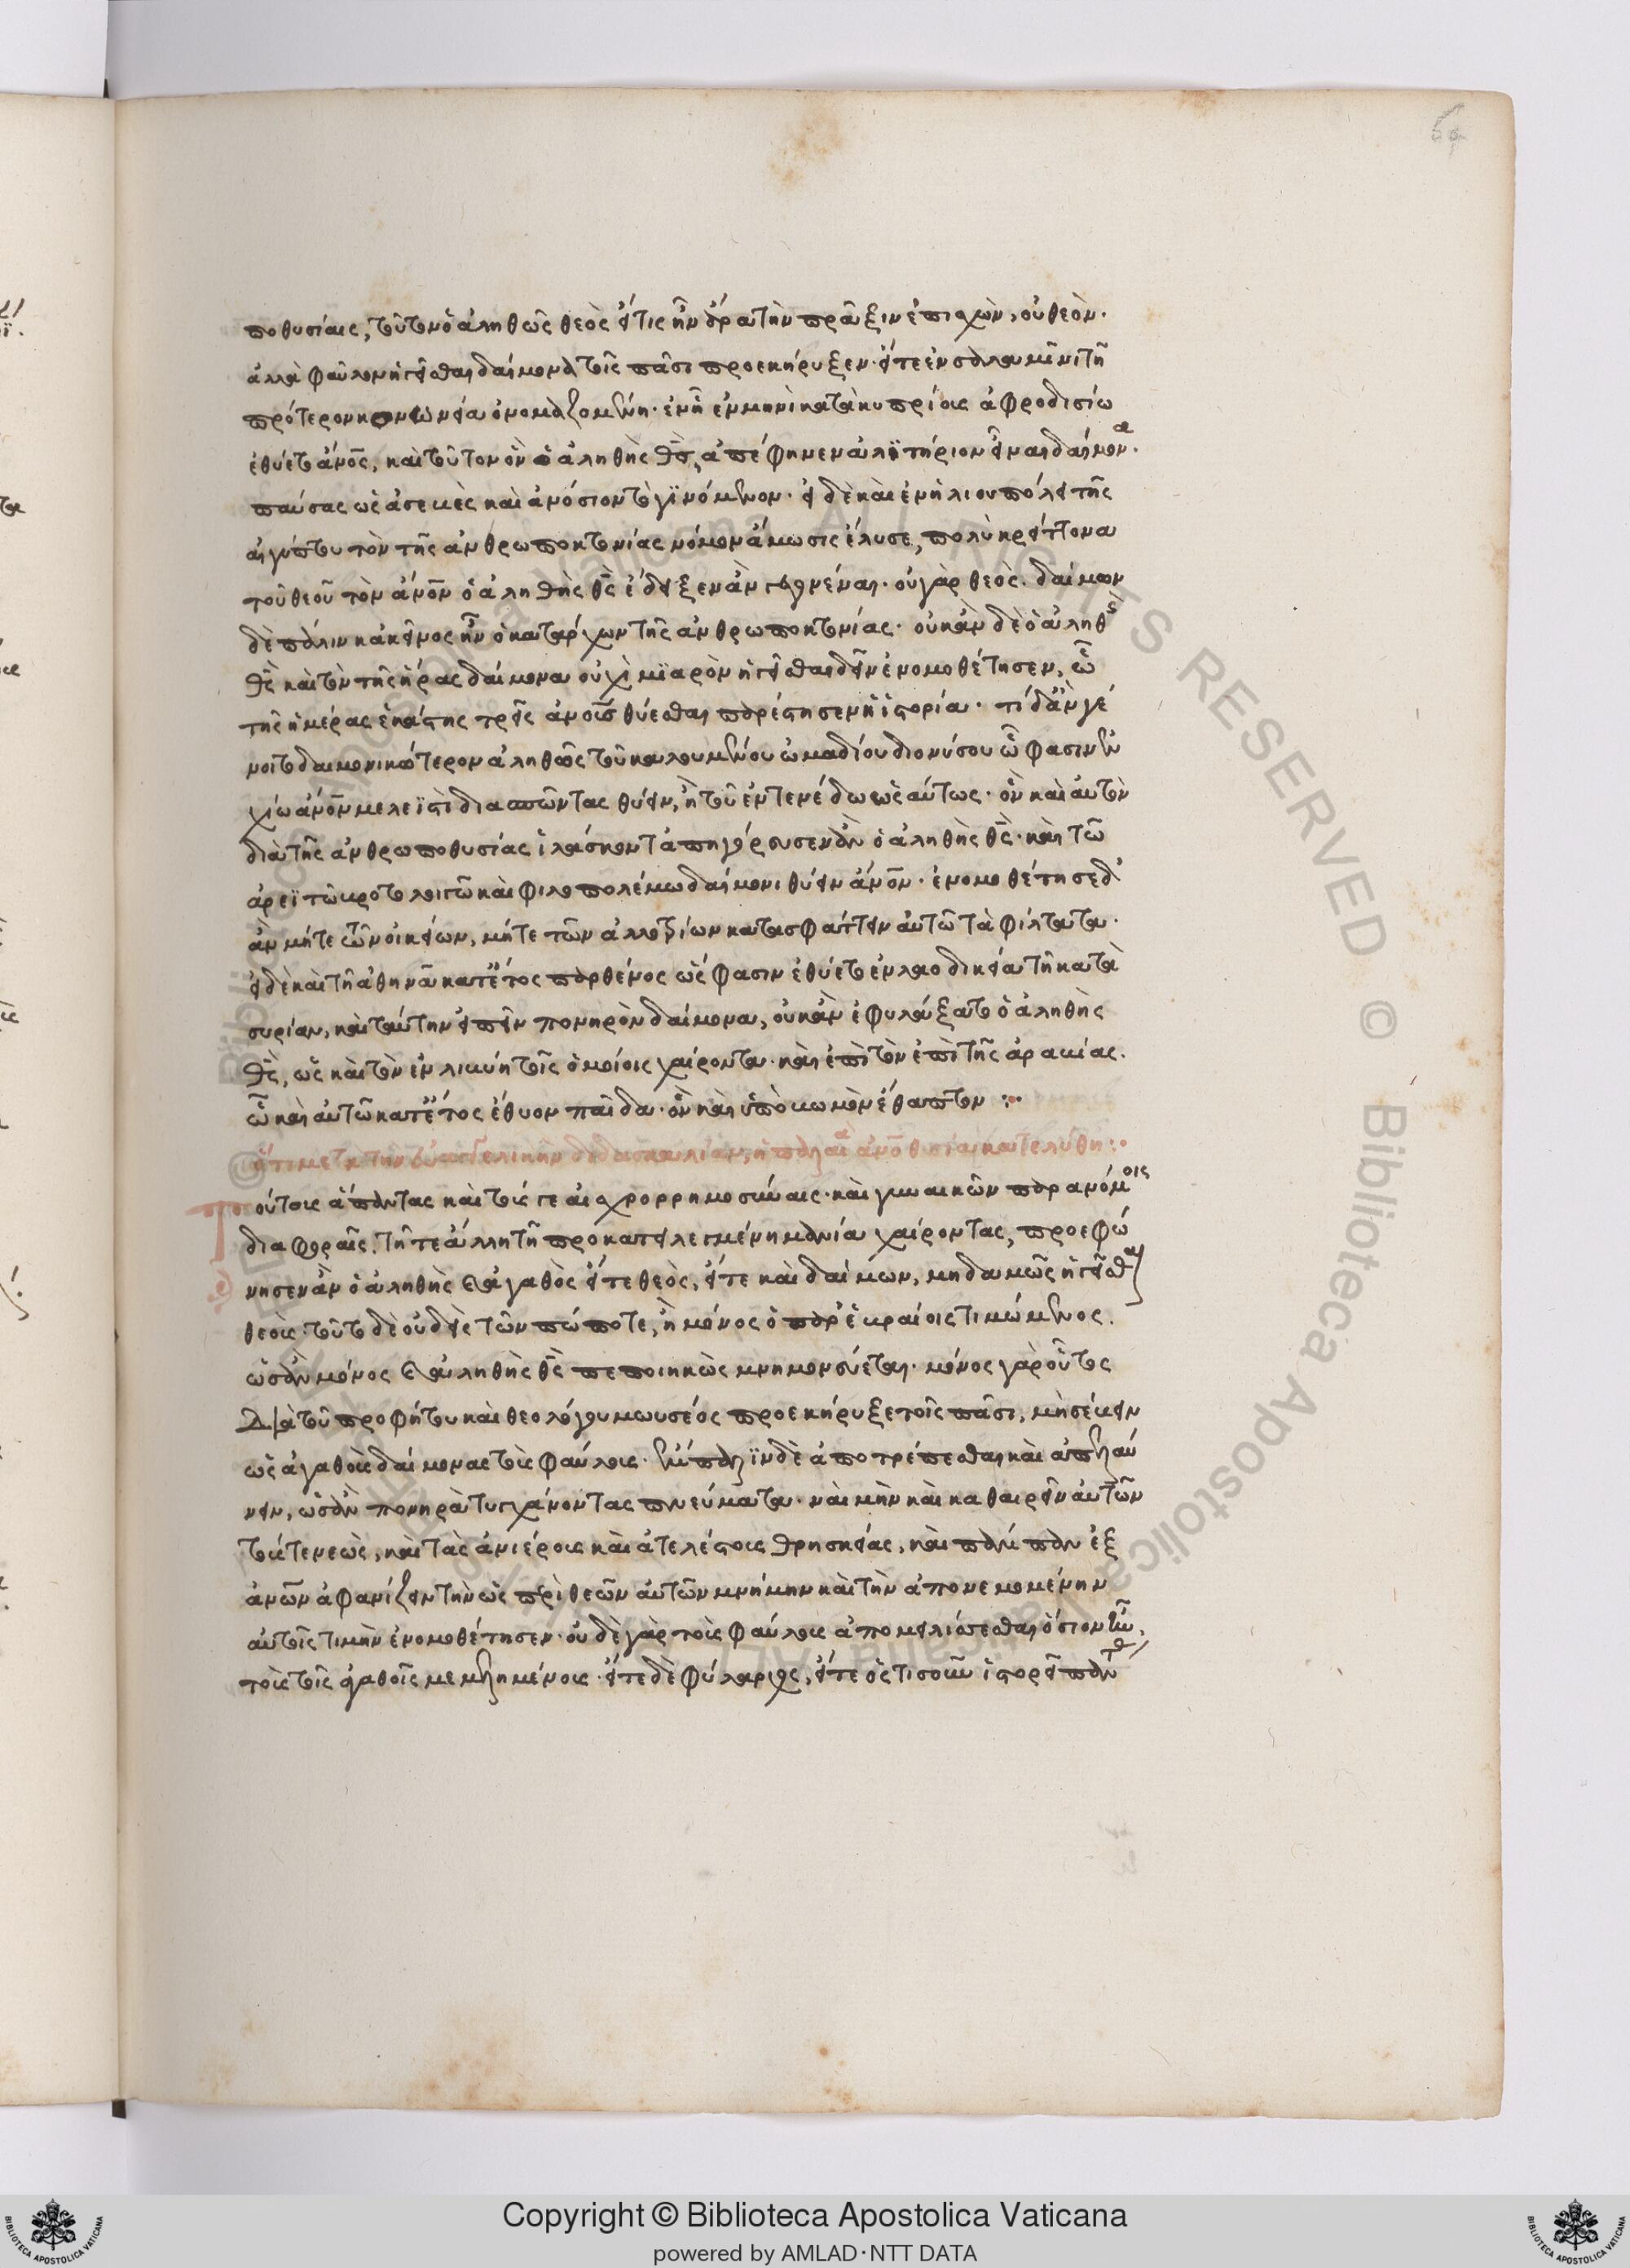 64
ποθυσίαις, τοῦτον ὁ ἀληθῶς θεὸς εἴτις ἦν ὁρᾶ τὴν πρᾶξιν ἐπισχὼν, οὐ θεὸν.
ἀλλὰ φαῦλον ἡγεῖσθαι δαίμονα τοῖς πᾶσι προεκήρυξεν· εἴτε ἐν σαλαμῖνι τῆ
πρότερον κορωνεία ὀνομαζομένη· ἐν ἧ ἐν μηνὶ κατὰ κυπρίοις ἀφροδισίω
ἐθύετο ἄνος, καὶ τοῦτον ὃν ὁ ἀληθὴς θς, ἀπέφηνεν ἀλϊτήριον εἶναι δαίμονα.
παύσας ὡς ἀσεβὲς καὶ ἀνόσιον τὸ γϊνόμενον· εἰ δὲ καὶ ἐν ἡλιουπόλει τῆς
αἰγύπτου τὸν τῆς ἀνθρωποκτονίας νόμον ἄμωσις ἔλυσε, πολὺ κρείττονα
τοῦ θεοῦ τὸν ἄνον ὁ ἀληθὴς θς ἔδειξεν ἂν γεγονέναι· οὐ γὰρ θεὸς. δαίμων
δὲ πάλιν κἀκεῖνος ἦν ὁ κατάρχων τῆς ἀνθρωποκτονίας· οὐκ ἂν δὲ ὁ ἀληθὴς
θς καὶ τὸν τῆς ἥρας δαίμονα οὐχὶ μϊαρὸν ἡγεῖσθαι δεῖν ἐνομοθέτησεν, ὧ
τῆς ἡμέρας ἑκάστης τρεῖς ἀνους θύεσθαι παρέστησεν ἡ ἱστορία· τί δ' ἂν γέ
νοιτο δαιμονικώτερον ἀληθῶς τοῦ καλουμένου ὠμαδίου διονύσου ὧ φασιν ἐν
χίω ἄνον μελεϊστὶ διασπῶντας θύειν, ἢ τοῦ ἐν τενέδω ὡσαύτως· ὃν καὶ αὐτὸν
διὰ τῆς ἀνθρωποθυσίας ἱλάσκοντ' ἀπηγόρευσεν ἂν ὁ ἀληθὴς θς· καὶ τῶ
ἄρεϊ τῶ βροτολοιγῶ καὶ φιλοπολέμω δαίμονι θύειν ἄνον· ἐνομοθέτησε δ'
ἂν μήτε τῶν οἰκείων, μήτε τῶν ἀλλοτρίων κατασφάττειν αὐτῶ τὰ φίλτατα·
εἰ δὲ καὶ τῆ ἀθηνᾶ κατ' ἔτος παρθένος ὥς φασιν ἐθύετο ἐν λαοδικεία τῆ κατὰ
συρίαν, καὶ ταύτην εἰπεῖν πονηρὸν δαίμονα, οὐκ ἂν ἐφυλάξατο ὁ ἀληθὴς
θς, ὡς καὶ τὸν ἐν λιβύη τοῖς ὁμοίοις χαίροντα· καὶ ἐπὶ τὸν ἐπὶ τῆς ἀραβίας.
ὧ καὶ αὐτῶ κατ' ἔτος ἔθυον παῖδα· ὃν καὶ ὑπὸ βωμὸν ἔθαπτον :·
ὅτι μετὰ τὴν εὐαγγελικὴν διδασκαλίαν, ἡ παλαιὰ ἀνοθυσία κατελύθη :·
Τούτοις ἅπαντας καὶ τοῖς γε αἰσχρορρημοσύναις· καὶ γυναικῶν παρανόμοις
διαφθοραῖς. τῆ τε ἄλλη τῆ προκατειλεγμένη μανία χαίροντας, προεφώ
νησεν ἂν ὁ ἀληθὴς ἀγαθὸς εἴτε θεὸς, εἴτε καὶ δαίμων, μηδαμῶς ἡγεῖσθαι
θεοὺς· τοῦτο δὲ οὐδεὶς τῶν πώποτε, ἢ μόνος ὁ παρ' ἑβραίοις τιμώμενος.
ὡσὰν μόνος ἀληθὴς θς πεποιηκὼς μνημονεύεται· μόνος γὰρ οὗτος
Διὰ τοῦ προφήτου καὶ θεολόγου μωυσέος προεκήρυξε τοῖς πᾶσι, μὴ σέβειν
ὡς ἀγαθοὺς δαίμονας τοὺς φαύλους· ἔμπαλϊν δὲ ἀποτρέπεσθαι καὶ ἀπελαύ
νειν, ὡσὰν πονηρὰ τυγχάνοντας πνεύματα· ναὶ μὴν καὶ καθαιρεῖν αὐτῶν
τούς τε νεὼς, καὶ τὰς ἀνιέρους καὶ ἀτελέστους θρησκείας, καὶ πάμπαν ἐξ
ἀνων ἀφανίζειν τὴν ὡς περὶ θεῶν αὐτῶν μνήμην καὶ τὴν ἀπονεμομένην
αὐτοῖς τιμὴν ἐνομοθέτησεν· οὐδὲ γὰρ τοὺς φαύλους ἀπομειλίσσεσθαι ὅσιον ἦν,
τοῖς τοῖς ἀγαθοῖς μεμελημένοις· εἴτε δὲ φύλαρχος, εἴτε ὅστισοῦν ἱστορεῖ πάντας